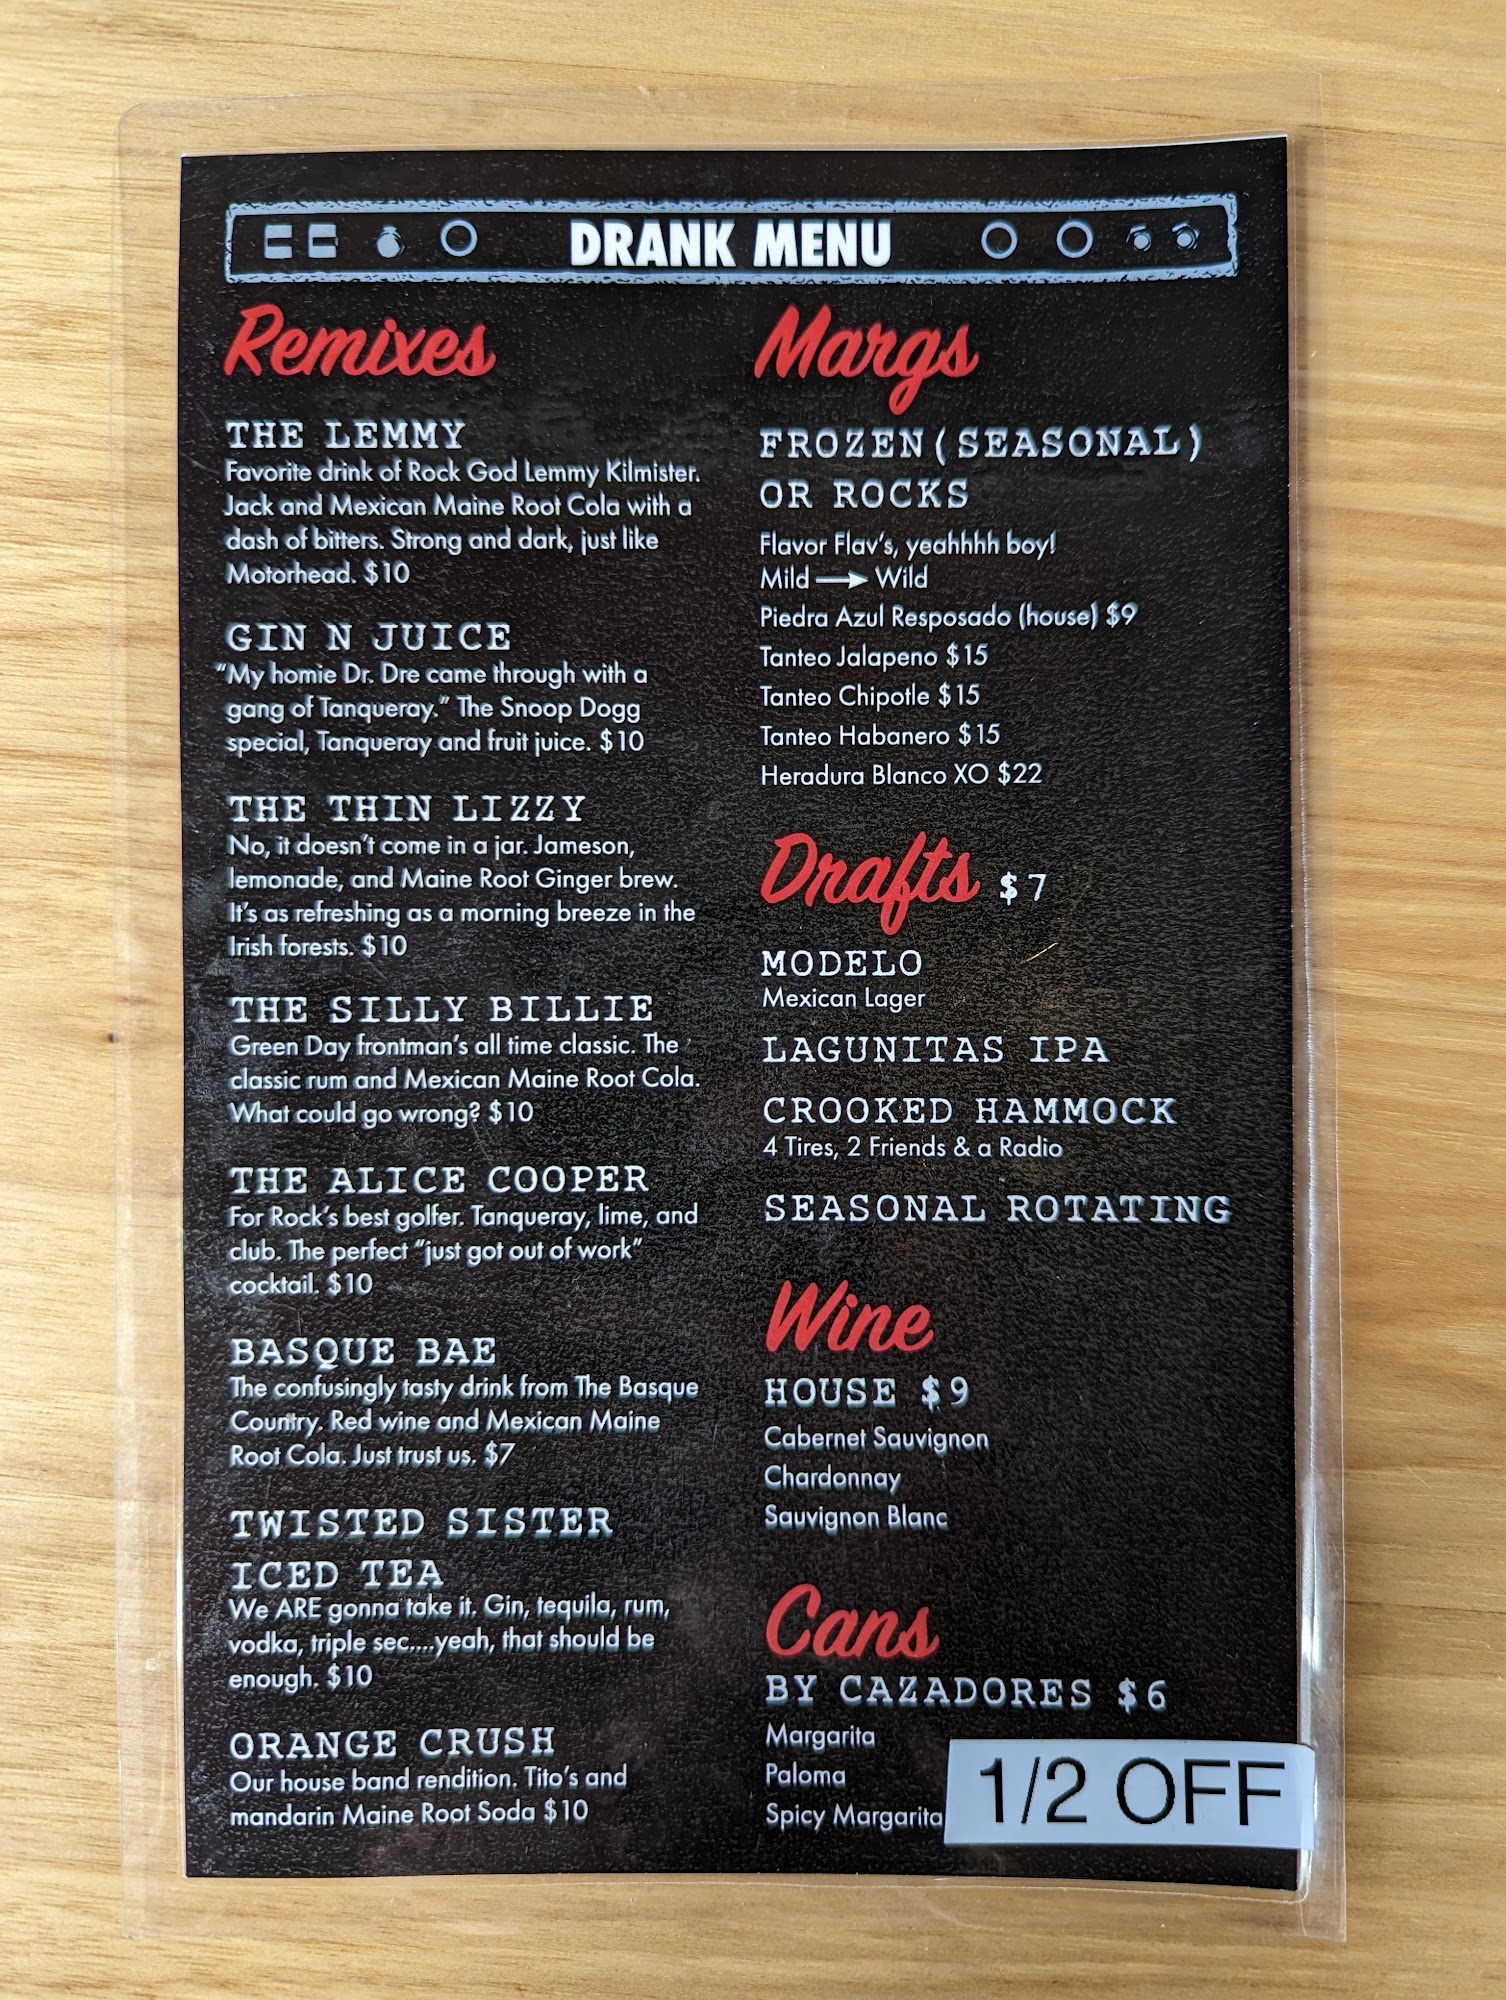 DRANK MENU
Remixes
THE LEMMY
Favorite drink of Rock God Lemmy Kilmister.
Jack and Mexican Maine Root Cola with a
dash of bitters. Strong and dark, just like
Motorhead. $10
GIN N JUICE
“My homie Dr. Dre came through with a
gang of Tanqueray.” The Snoop Dogg
special, Tanqueray and fruit juice. $10
THE THIN LIZZY
No, it doesn’t come in a jar. Jameson,
lemonade, and Maine Root Ginger brew.
It’s as refreshing as a morning breeze in the
Irish forests. $10
THE SILLY BILLIE
Green Day frontman’s all time classic. The
classic rum and Mexican Maine Root Cola.
What could go wrong? $10
THE ALICE COOPER
For Rock’s best golfer. Tanqueray, lime, and
club. The perfect “just got out of work”
cocktail. $10
BASQUE BAE
The confusingly tasty drink from The Basque
Country. Red wine and Mexican Maine
Root Cola. Just trust us. $7
TWISTED SISTER
ICED TEA
We ARE gonna take it. Gin, tequila, rum,
vodka, triple sec....yeah, that should be
enough. $10
ORANGE CRUSH
Our house band rendition. Tito’s and
mandarin Maine Root Soda $10
Margs
FROZEN(SEASONAL)
OR ROCKS
Flavor Flav’s, yeahhhh boy!
Mild → Wild
Piedra Azul Resposado (house) $9
Tanteo Jalapeno $15
Tanteo Chipotle $15
Tanteo Habanero $15
Heradura Blanco XO $22
Drafts $7
MODELO
Mexican Lager
LAGUNITAS IPA
CROOKED HAMMOCK
4 Tires, 2 Friends & a Radio
SEASONAL ROTATING
Wine
HOUSE $9
Cabernet Sauvignon
Chardonnay
Sauvignon Blanc
Cans
BY CAZADORES $6
Margarita
Paloma
Spicy Margarita
1/2 OFF